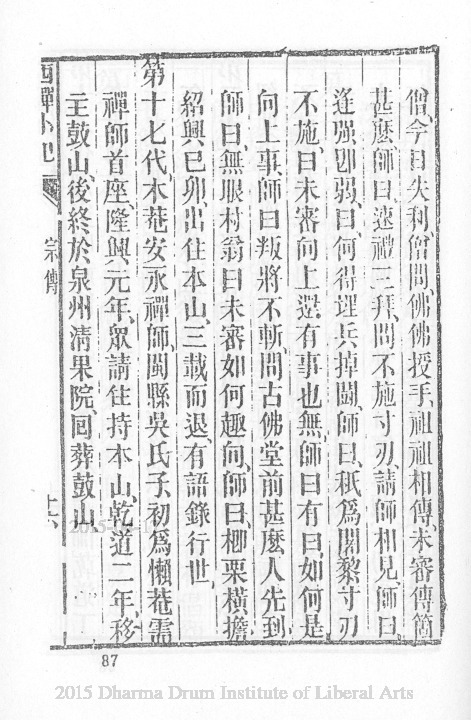 僧、今日失利、僧問、佛佛授手、祖祖相傳、未審傳箇
甚麽、師曰、速禮三拜、問不施寸刃、請師相見、師曰、
逢强卽弱、曰何得埋兵掉鬪、師曰、秖爲闍黎寸刃
不施、曰未審向上還有事也無、師曰有、曰如何是
向上事、師曰叛將不斬、問古佛堂前甚麽人先到
師曰、無眼村翁、曰未審如何趣向、師曰、楖栗橫擔
紹興己卯、出住本山、三載而退、有語錄行世、
第十七代、木菴安永禪師、閩縣吳氏子、初爲懶菴需
禪師首座、隆興元年、眾請住持本山、乾道二年、移
主鼓山、後終於泉州清果院、回葬鼓山
西禪小記
宗傳
87
2015 Dharma Drum Institute of Liberal Arts